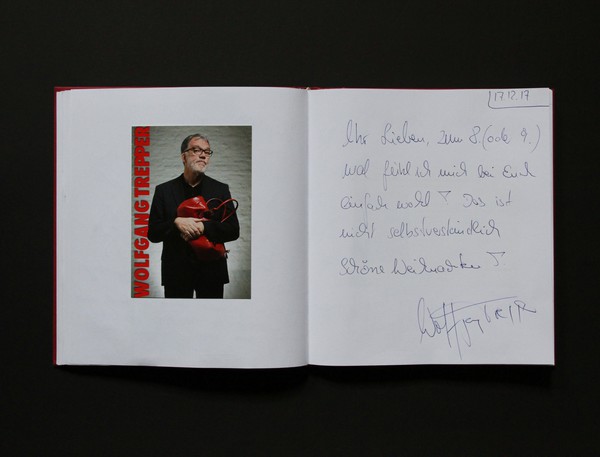 WOLFGANG TREPPER
17.12.17
Ihr Lieben, zum 8. (ode 9.)
Mal fühl ich mich bei Euch
einfach wohl! Das ist
nicht selbstverständlich
Schöne Weihnachten!
Wolfgang Trepper